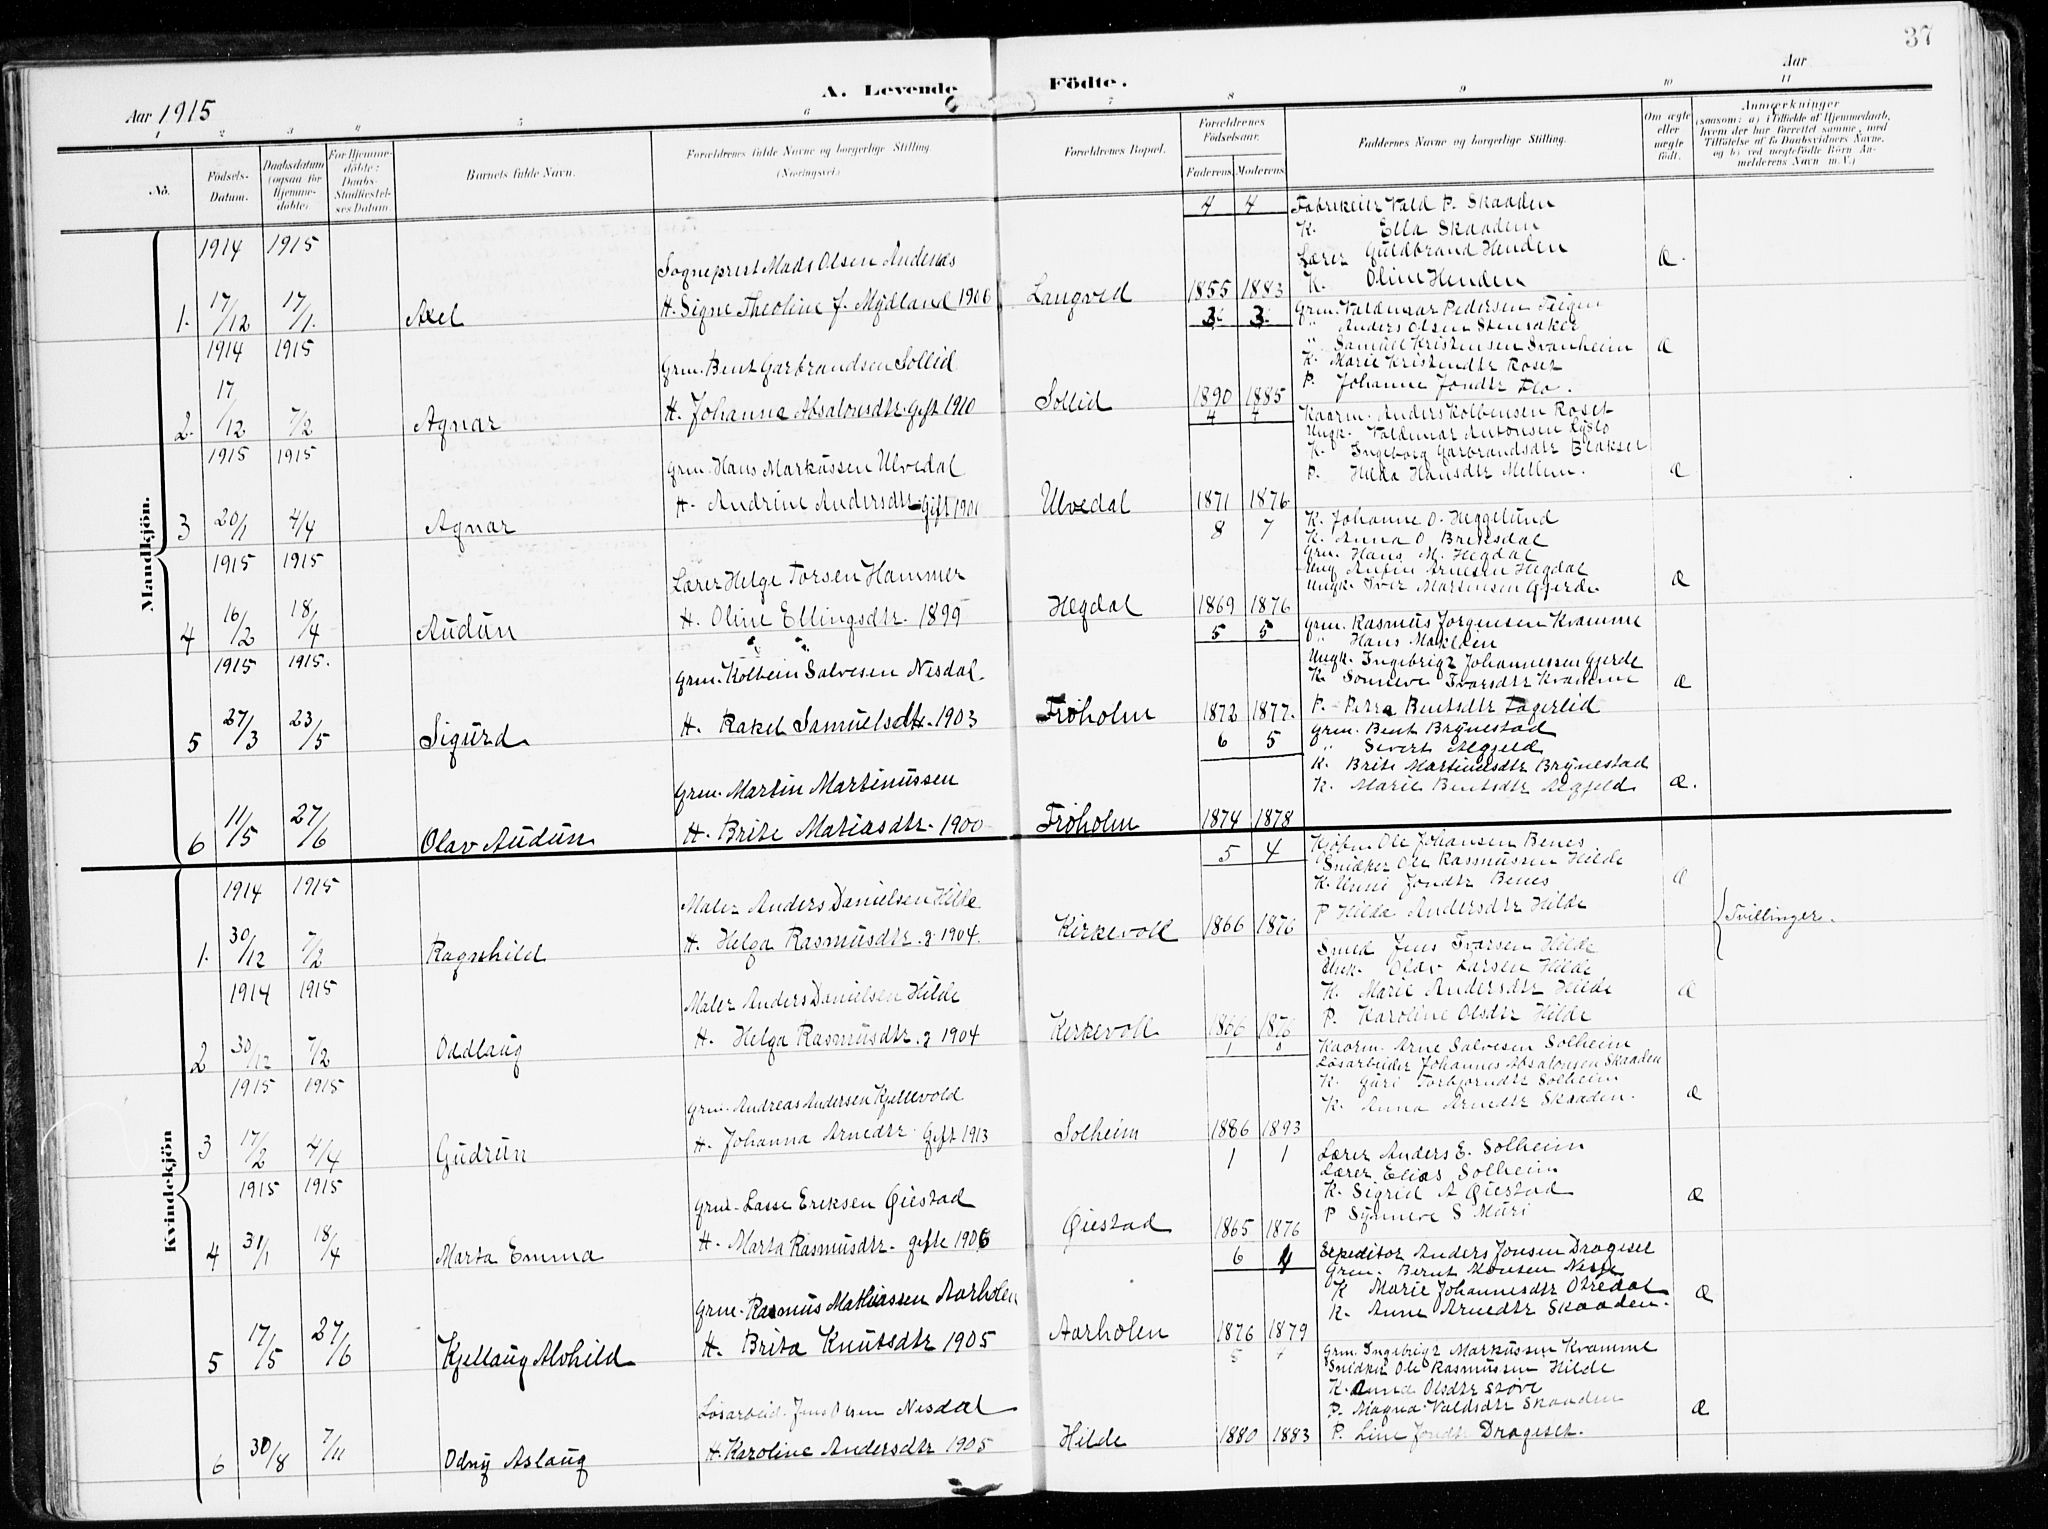 37
A. Levende Födte.
Aar 1915
Aar
1 2 3 4 5 6 7 8 9 10 11
No.
Födsels-Datum.
Daabsdatum (ogsaa for Hjemme-döbte)
For Hjemme-döbte: Daabs-Stadfæstel-ses Datum.
Barnets fulde Navn.
Forældrenes fulde Navne og borgerlige Stilling. (Næringsvei)
Forældrenes Bopæl.
Forældrenes Födselsaar.
Faderens Moderens
Faddernes Navne og borgerlige Stilling.
Om ægte eller uægte født.
Anmærkninger
(saasom: a) i Tilfælde af Hjemmedaab, hvem der har forrettet samme, med Tilföielse af to Daabsvidners Navne, og b) ved uægtefödte Börn An-melderens Navn m. V.)
Mandkjön.
4 4
Fabrikeier Vald P. Skaaden
K. Ella Skaaden
Lærer Guldbrand Henden
K. Oline Henden
1914 1915
Sogneprest Mads Olsen Andenæs
1. 17/12 17/1. Axel
H. Signe Theoline f. Mydland 1906
Langved 1855 1883 Æ.
3 3
Grm. Valdemar Pedersen Teigen
" Anders Olsen Stensaker
" Samuel Kristensen Svanheim
K. Marie Kristendtr Roset
P. Johanne Jondtr Flo.
1914 1915
Grm. Bent Garbrandsen Sollid
2. 17/12 7/2 Agnar
H. Johanne Absalonsdtr. Gift 1910
Sollid 1890 1885 Æ
4 4
Kaarm. Anders Kolbensen Roset
Ungk. Valdemar Antonsen Lyslo
K. Ingeborg Garbrandsdtr Blakset
P. Hilda Hansdtr Mellem.
1915 1915
Grm. Hans Markussen Ulvedal
3 20/1 4/4 Agnar
H. Andrine Andersdtr Gift 1901
Ulvedal 1871 1876 Æ
8 7
K. Johanne O. Heggelund
K. Anna O Breisdal
Grm. Hans M. Hegdal
Ung Arnesen Hegdal
Ungk. Iver Martensen Gjerde
1915 1915
Lærer Helge Torsen Hammer
4 16/2 18/4 Audun
H. Oline Ellingsdtr. 1899
Hegdal 1869 1876 Æ
5 5
Grm. Rasmus Jorgensen Kvamme
" Hans Maklein
Ungk. Ingebrigt Johannessen Gjerde
K. Sonneve Ivarsdtr Kvamme
P. Petra Bentsdtr Fagerlid
1915 1915.
Grm. Kolbein Salvesen Nesdal
5 27/3 23/5 Sigurd
H. Rakel Samuelsdtr. 1903
Fröholm 1872 1877. Æ
6 5
Grm. Bent Brynestad
" Sivert Algjeld
K. Brite Martinusdtr Brynestad
K. Marie Bentsdtr Algjeld
Grm. Martin Martinussen
6 11/5 27/6 Olav Audun
H. Brite Matiasdtr. 1900
Fröholm 1874 1878 Æ.
Kvindekjön
5 4
Kjøbm Ole Johansen Benes
Snidker Ole Rasmussen Hilde
K. Unni Jondtr Benes
P Hilda Andersdtr Hilde
1914 1915
Maler Anders Danielsen Hilde
1. 30/12 7/2 Ragnhild
H. Helga Rasmusdtr. g 1904.
Kirkevoll 1866 1876 Æ
Tvillinger.
Smed Jens Ivarsen Hilde
Olav Larsen Hilde
K. Marie Andersdtr Hilde
P. Karoline Olsdtr Hilde
1914 1915
Maler Anders Danielsen Hilde
2 30/12 7/2 Oddlaug
H. Helga Rasmusdtr. g 1904
Kirkevoll 1866 1876 Æ
1 0
Kaarm. Arne Salvesen Solheim
Løsarbeider Johannes Absalonsen Skaaden
K. Guri Torbjorndtr Solheim
K. Anna Arnedtr Skaaden.
1915 1915
Grm. Andreas Andersen Kjellevold
3 17/2 4/4 Gudrun
H. Johanna Arnedtr. Gift 1913
Solheim 1886 1893 Æ
1 1
Lærer Anders E. Solheim
Lærer Elias Solheim
K. Sigrid A Øiestad
P Synneve S Muri
1915 1915
Grm. Lasse Eriksen Øiestad
4 31/1 18/4 Marta Emma
H. Marta Rasmusdtr. gifte 1906
Øiestad 1865 1876 Æ
6 4
Expeditor Anders Jonsen Drageset
Grm. Bernt Monsen Nesje
K Marie Johannesdtr Otredal
K. Anne Arnedtr Skaaden.
Grm. Rasmus Mathiassen Aarholen
5 17/5 27/6 Kjellaug Alvhild
H. Brita Knutsdtr 1905
Aarholen 1876 1879 Æ
5 4
Grm. Ingebrigt Markussen Kvamme
Snidker Ole Rasmussen Hilde
K. Anna Olsdtr Støve
P. Magna Valdsdtr Skaaden
P. Line Jondtr Drageset.
Løsarbeid. Jens Olsen Nesdal
6 30/8 7/11 Odny Aslaug
H. Karoline Andersdtr 1905
Hilde 1880 1883 Æ